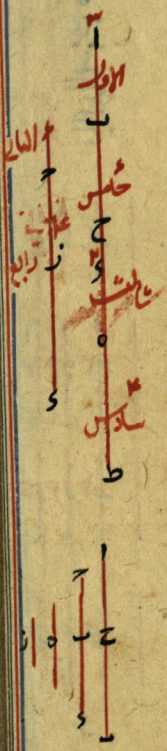 ا
الاول
ب
خامس
ح
ء
ثالث
ه
سادس
ط
الثاني
ح
ز
رابع
د
ا
ح
ح
ب
ه
ز
د
ب